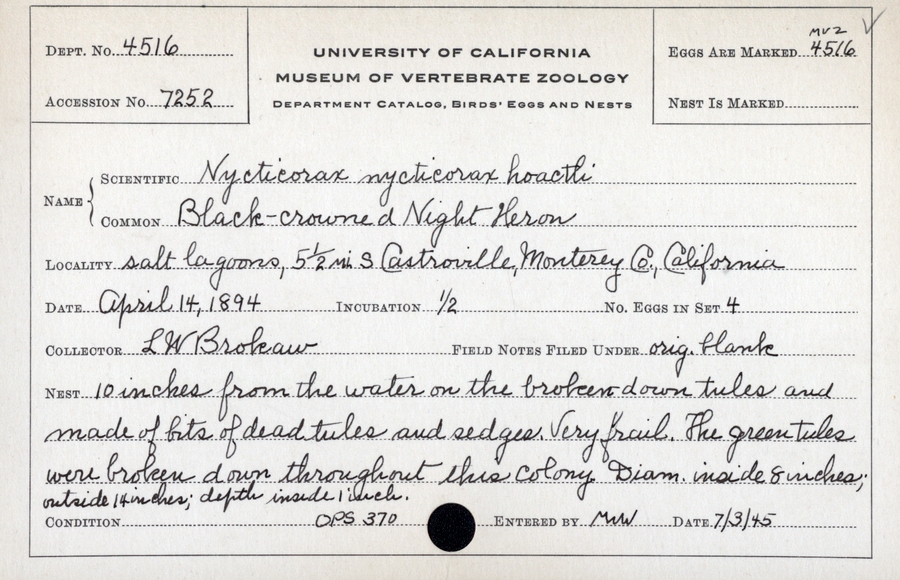 DEPT. NO. 4516
UNIVERSITY OF CALIFORNIA
MUSEUM OF VERTEBRATE ZOOLOGY
DEPARTMENT CATALOG, BIRDS' EGGS AND NESTS
MVZ
EGGS ARE MARKED 4516
ACCESSION NO. 7252
NEST IS MARKED
NAME
SCIENTIFIC Nycticorax nycticorax hoactli
COMMON Black-crowned Night Heron
LOCALITY salt lagoons, 5½ mi. S Castroville, Monterey Co., California
DATE April 14, 1894 INCUBATION 1/2 NO. EGGS IN SET 4
COLLECTOR L W Brokaw FIELD NOTES FILED UNDER orig. blank
NEST 10 inches from the water on the broken down tules and
made of bits of dead tules and sedges. Very frail. The green tules
were broken down throughout this colony. Diam. inside 8 inches;
outside 14 inches; depth inside 1 inch.
CONDITION OPS 370 ENTERED BY MWW DATE 7/3/45